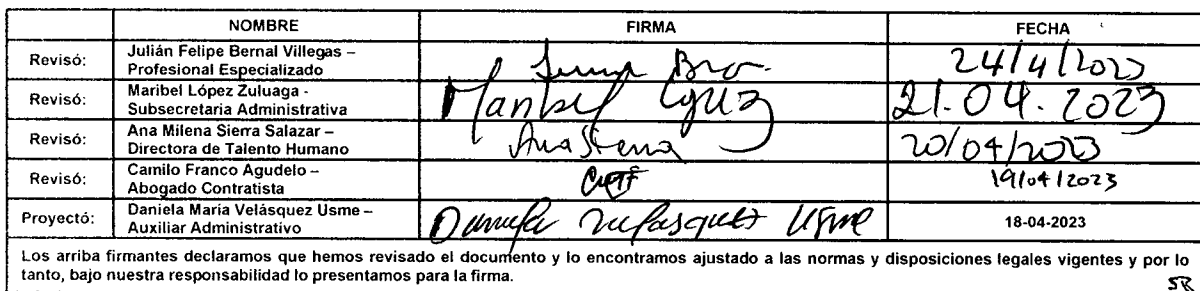 NOMBRE FIRMA FECHA
Revisó: Julián Felipe Bernal Villegas –
Profesional Especializado 24/4/2023
Revisó: Maribel López Zuluaga -
Subsecretaria Administrativa 21.04.2023
Revisó: Ana Milena Sierra Salazar –
Directora de Talento Humano Ana Sierra 20/04/2023
Revisó: Camilo Franco Agudelo –
Abogado Contratista 19/04/2023
Proyectó: Daniela María Velásquez Usme –
Auxiliar Administrativo Daniela Velasquez Usme 18-04-2023
Los arriba firmantes declaramos que hemos revisado el documento y lo encontramos ajustado a las normas y disposiciones legales vigentes y por lo
tanto, bajo nuestra responsabilidad lo presentamos para la firma.
SR